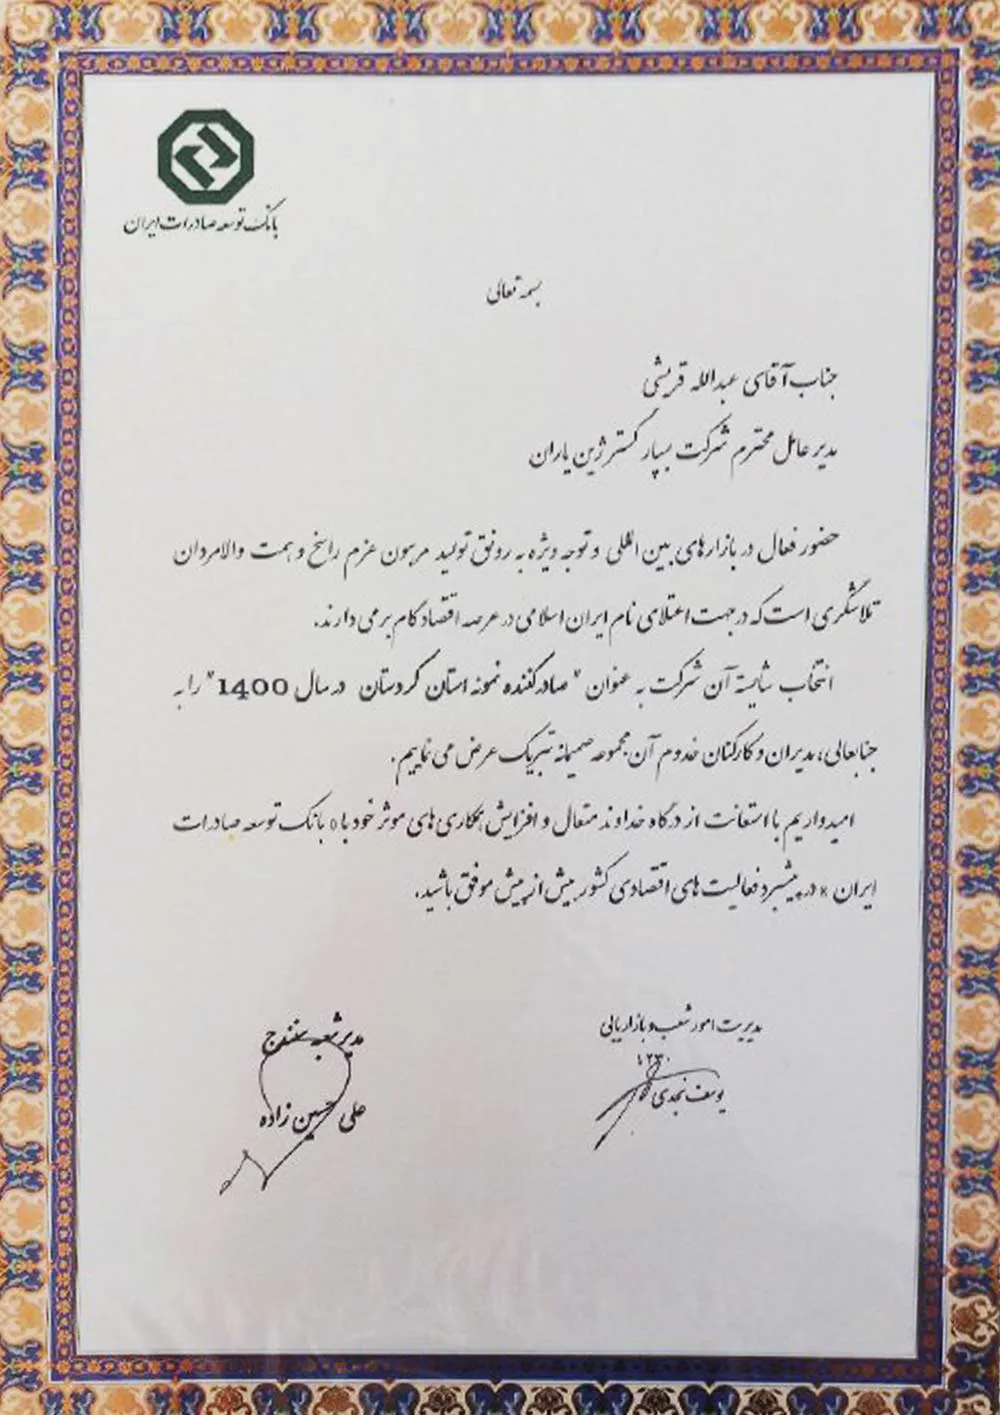 بانک توسعه صادرات ایران
بسمه تعالی
جناب آقای عبدالله قریشی
مدیر عامل محترم شرکت بسپار گستر ژین یاران
حضور فعال در بازارهای بین المللی و توجه ویژه به رونق تولید مرهون عزم راسخ و همت والامردان
تلاشگری است که در جهت اعتلای نام ایران اسلامی در عرصه اقتصاد گام برمی دارند.
انتخاب شایسته آن شرکت به عنوان "صادرکننده نمونه استان کردستان در سال 1400" را به
جنابعالی، مدیران و کارکنان خدوم آن مجموعه صمیمانه تبریک عرض می نماییم.
امیدواریم با استعانت از درگاه خداوند متعال و افزایش همکاری های موثر خود با « بانک توسعه صادرات
ایران » در پیشبرد فعالیت های اقتصادی کشور بیش از پیش موفق باشید.
مدیریت امور شعب و بازاریابی
۱۲۳۰
یوسف نجدی
مدیر شعبه سنندج
علی حسین زاده